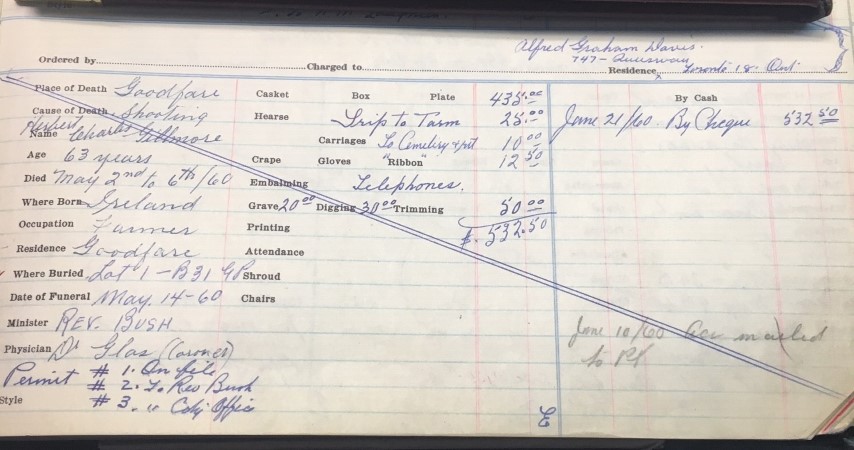 Alfred Graham Davis.
Ordered by Charged to 747-
Residence Toronto 18. Ont.
Place of Death Goodfare Casket Box Plate 435.00 By Cash
Cause of Death Shooting Hearse Trip to Farm 25.00 June 21/60 By Cheque 532 50
Herbert
Name Charles Gillmore Carriages To Cemetery 10 00
Age 63 years Crape Gloves "Ribbon" 12 50
Died May 2nd to 6th/60 Embalming Telephones.
Where Born Ireland Grave 20 00 Digging 30 00 Trimming 50 00
Occupation Farmer Printing $. 532.50
Residence Goodfare Attendance
Where Buried Lot 1 - B31 GP Shroud
Date of Funeral May. 14-60 Chairs
Minister REV. BUSH June 10/60 Acc mailed
Physician Dr Glas (Coroner) to
Permit # 1. On file
# 2. To Rev Bush
Style # 3. " City Office